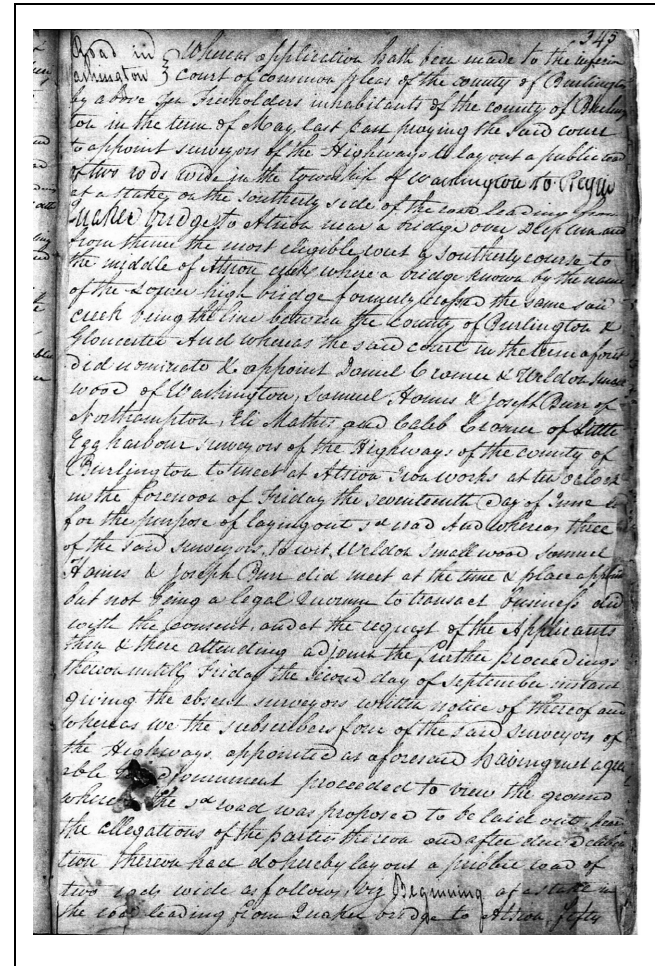 345
Road in
Washington } Whereas application hath been made to the inferior
court of common pleas of the county of Burlington
by above ten Freeholders inhabitants of the county of Burling
ton in the term of May, last past praying the said court
to appoint surveyors of the Highways to lay out a public road
of two rods wide in the township of Washington to Begin
at a stake on the southerly side of the road leading from
Quaker bridge to Atsion near a bridge over Deep run and
from thence the most eligible rout a southerly course to
the middle of Atsion creek where a bridge known by the name
of the Lower high bridge formerly crossed the same said
creek being the line between the county of Burlington &
Gloucester And whereas the said court in the term aforesd
did nominate & appoint Daniel Cramer & Weldon Small
wood of Washington, Samuel Haines & Joseph Burr of
Northampton, Eli Mathis and Caleb Cramer of Little
Egg harbour surveyors of the Highways of the county of
Burlington to meet at Atsion Iron works at ten oClock
in the forenoon of Friday the seventeenth day of June
for the purpose of laying out sd road And whereas three
of the said surveyors, to wit, Weldon Smallwood Samuel
Haines & Joseph Burr did meet at the time & place
but not being a legal Quorum to transact business did
with the Consent, and at the request of the Applicants
then & there attending adjourn the further proceedings
thereon untill Friday the second day of September instant
giving the absent surveyors written notice of thereof and
whereas we the subscribers four of the said surveyors of
the Highways appointed as aforesaid having met agree
able proceeded to view the ground
where the sd road was proposed to be laid out hear
the allegations of the parties thereon and after due delibera
tion thereon had do hereby lay out a public road of
two rods wide as follows, Viz Beginning at a stake in
the road leading from Quaker bridge to Atsion, fifty